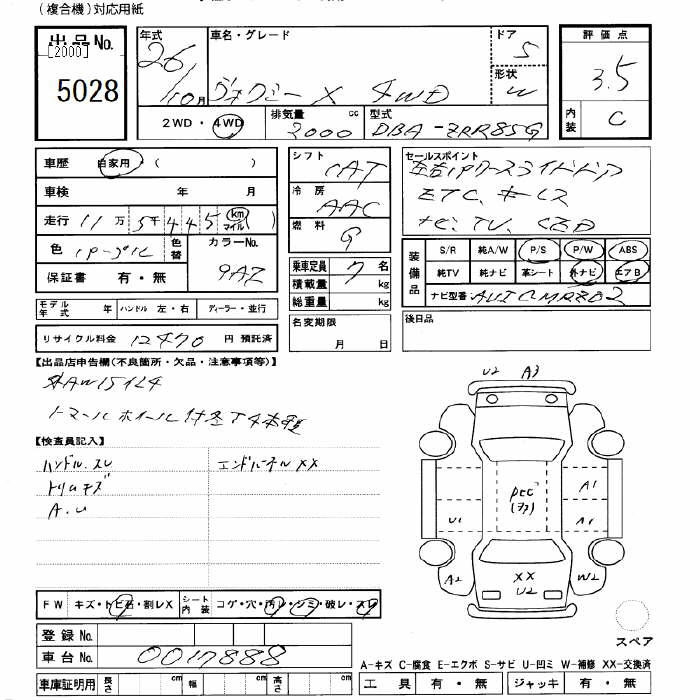 (複合機)対応用紙
出品No. 年式 車名・グレード ドア 評価点
[2000] 26 5
5028 10月 ヴォクシー X 4WD 形状 W 3.5
2WD・4WD 排気量 cc 2000 型式 DBA-ZRR85G 内装 C
車歴 自家用 ( ) シフト CAT セールスポイント
車検 年 月 冷房 AAC 左右Pワースライドドア
走行 11万5千445 km (マイル) ETC、キーレス
色 パープル 色替 カラーNo. 9AZ 燃料 G ナビ、TV、CD
保証書 有・無 乗車定員 7名 装備品 S/R 純A/W P/S P/W ABS
積載量 kg 純TV 純ナビ 革シート 外ナビ エアB
総重量 kg ナビ型番
モデル年式 年 ハンドル 左・右 ディーラー・並行 名変期限 後日品
リサイクル料金 12470 円 預託済 月 日
【出品店申告欄(不良箇所・欠品・注意事項等)】
外AW15インチ
ノーマルホイール付
U2 A3
【検査員記入】
ハンドル、スレ エンドパネルXX
トリムキズ
A.U
A1
U1 A1
A2 XX W2
U2
FW キズ・トビ石・割レX シート内装 コゲ・穴・汚レ・シミ・破レ・スレ
登録No. スペア
車台No. 0017888
A-キズ C-腐食 E-エクボ S-サビ U-凹ミ W-補修 XX-交換済
車庫証明用 長さ cm 幅 cm 高さ cm 工具 有・無 ジャッキ 有・無